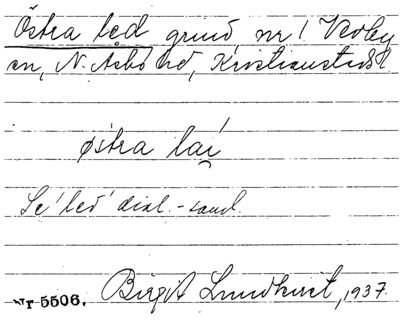 Östra led grund, nr 1 Verby
sn, N. Åsbo hd, Kristianstads l
østra laí
Se 'led' dial.-saml.
Nr 5506. Birgit Lundkvist, 1937.